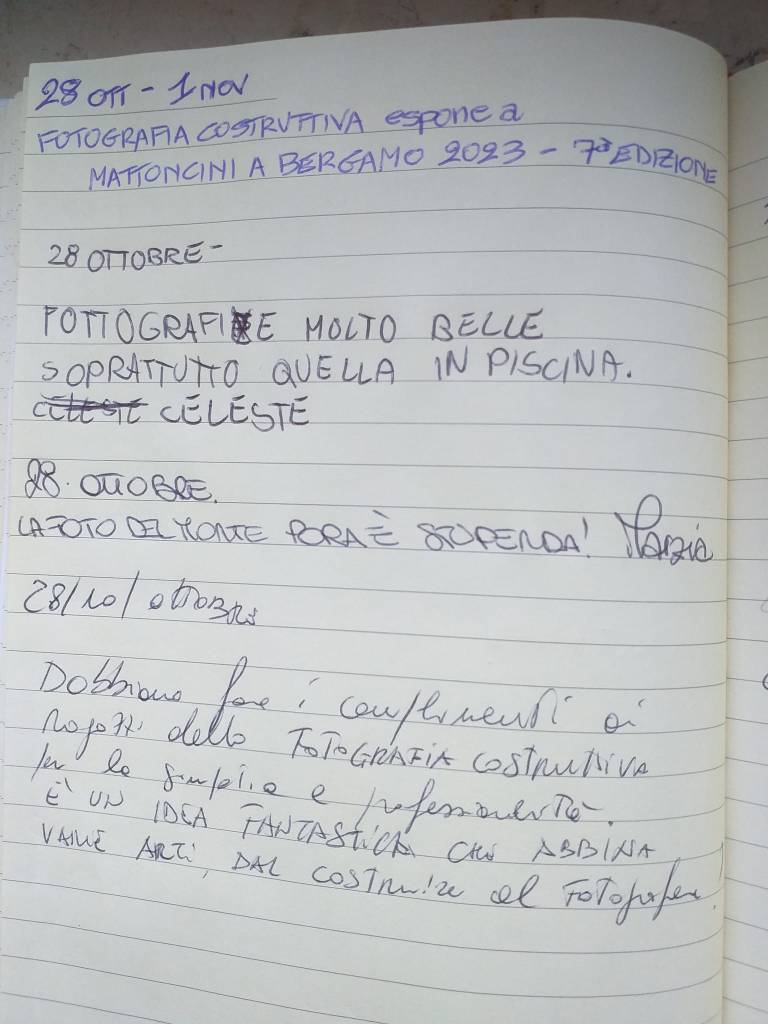 28 OTT - 1 NOV
FOTOGRAFIA COSTRUTTIVA espone a
MATTONCINI A BERGAMO 2023 - 7ª EDIZIONE
28 OTTOBRE -
FOTTOGRAFIE MOLTO BELLE
SOPRATTUTTO QUELLA IN PISCINA.
CELESTE CELESTE
28. OTTOBRE.
LA FOTO DEL MONTE PORA È STUPENDA! Marzia
28/10/ OTTOBRE
Dobbiamo fare i complimenti ai
ragazzi della FOTOGRAFIA COSTRUTTIVA
per la simpatia e professionalità.
È UN IDEA FANTASTICA CHE ABBINA
VARIE ARTI, DAL COSTRUIRE al FOTOgrafare!